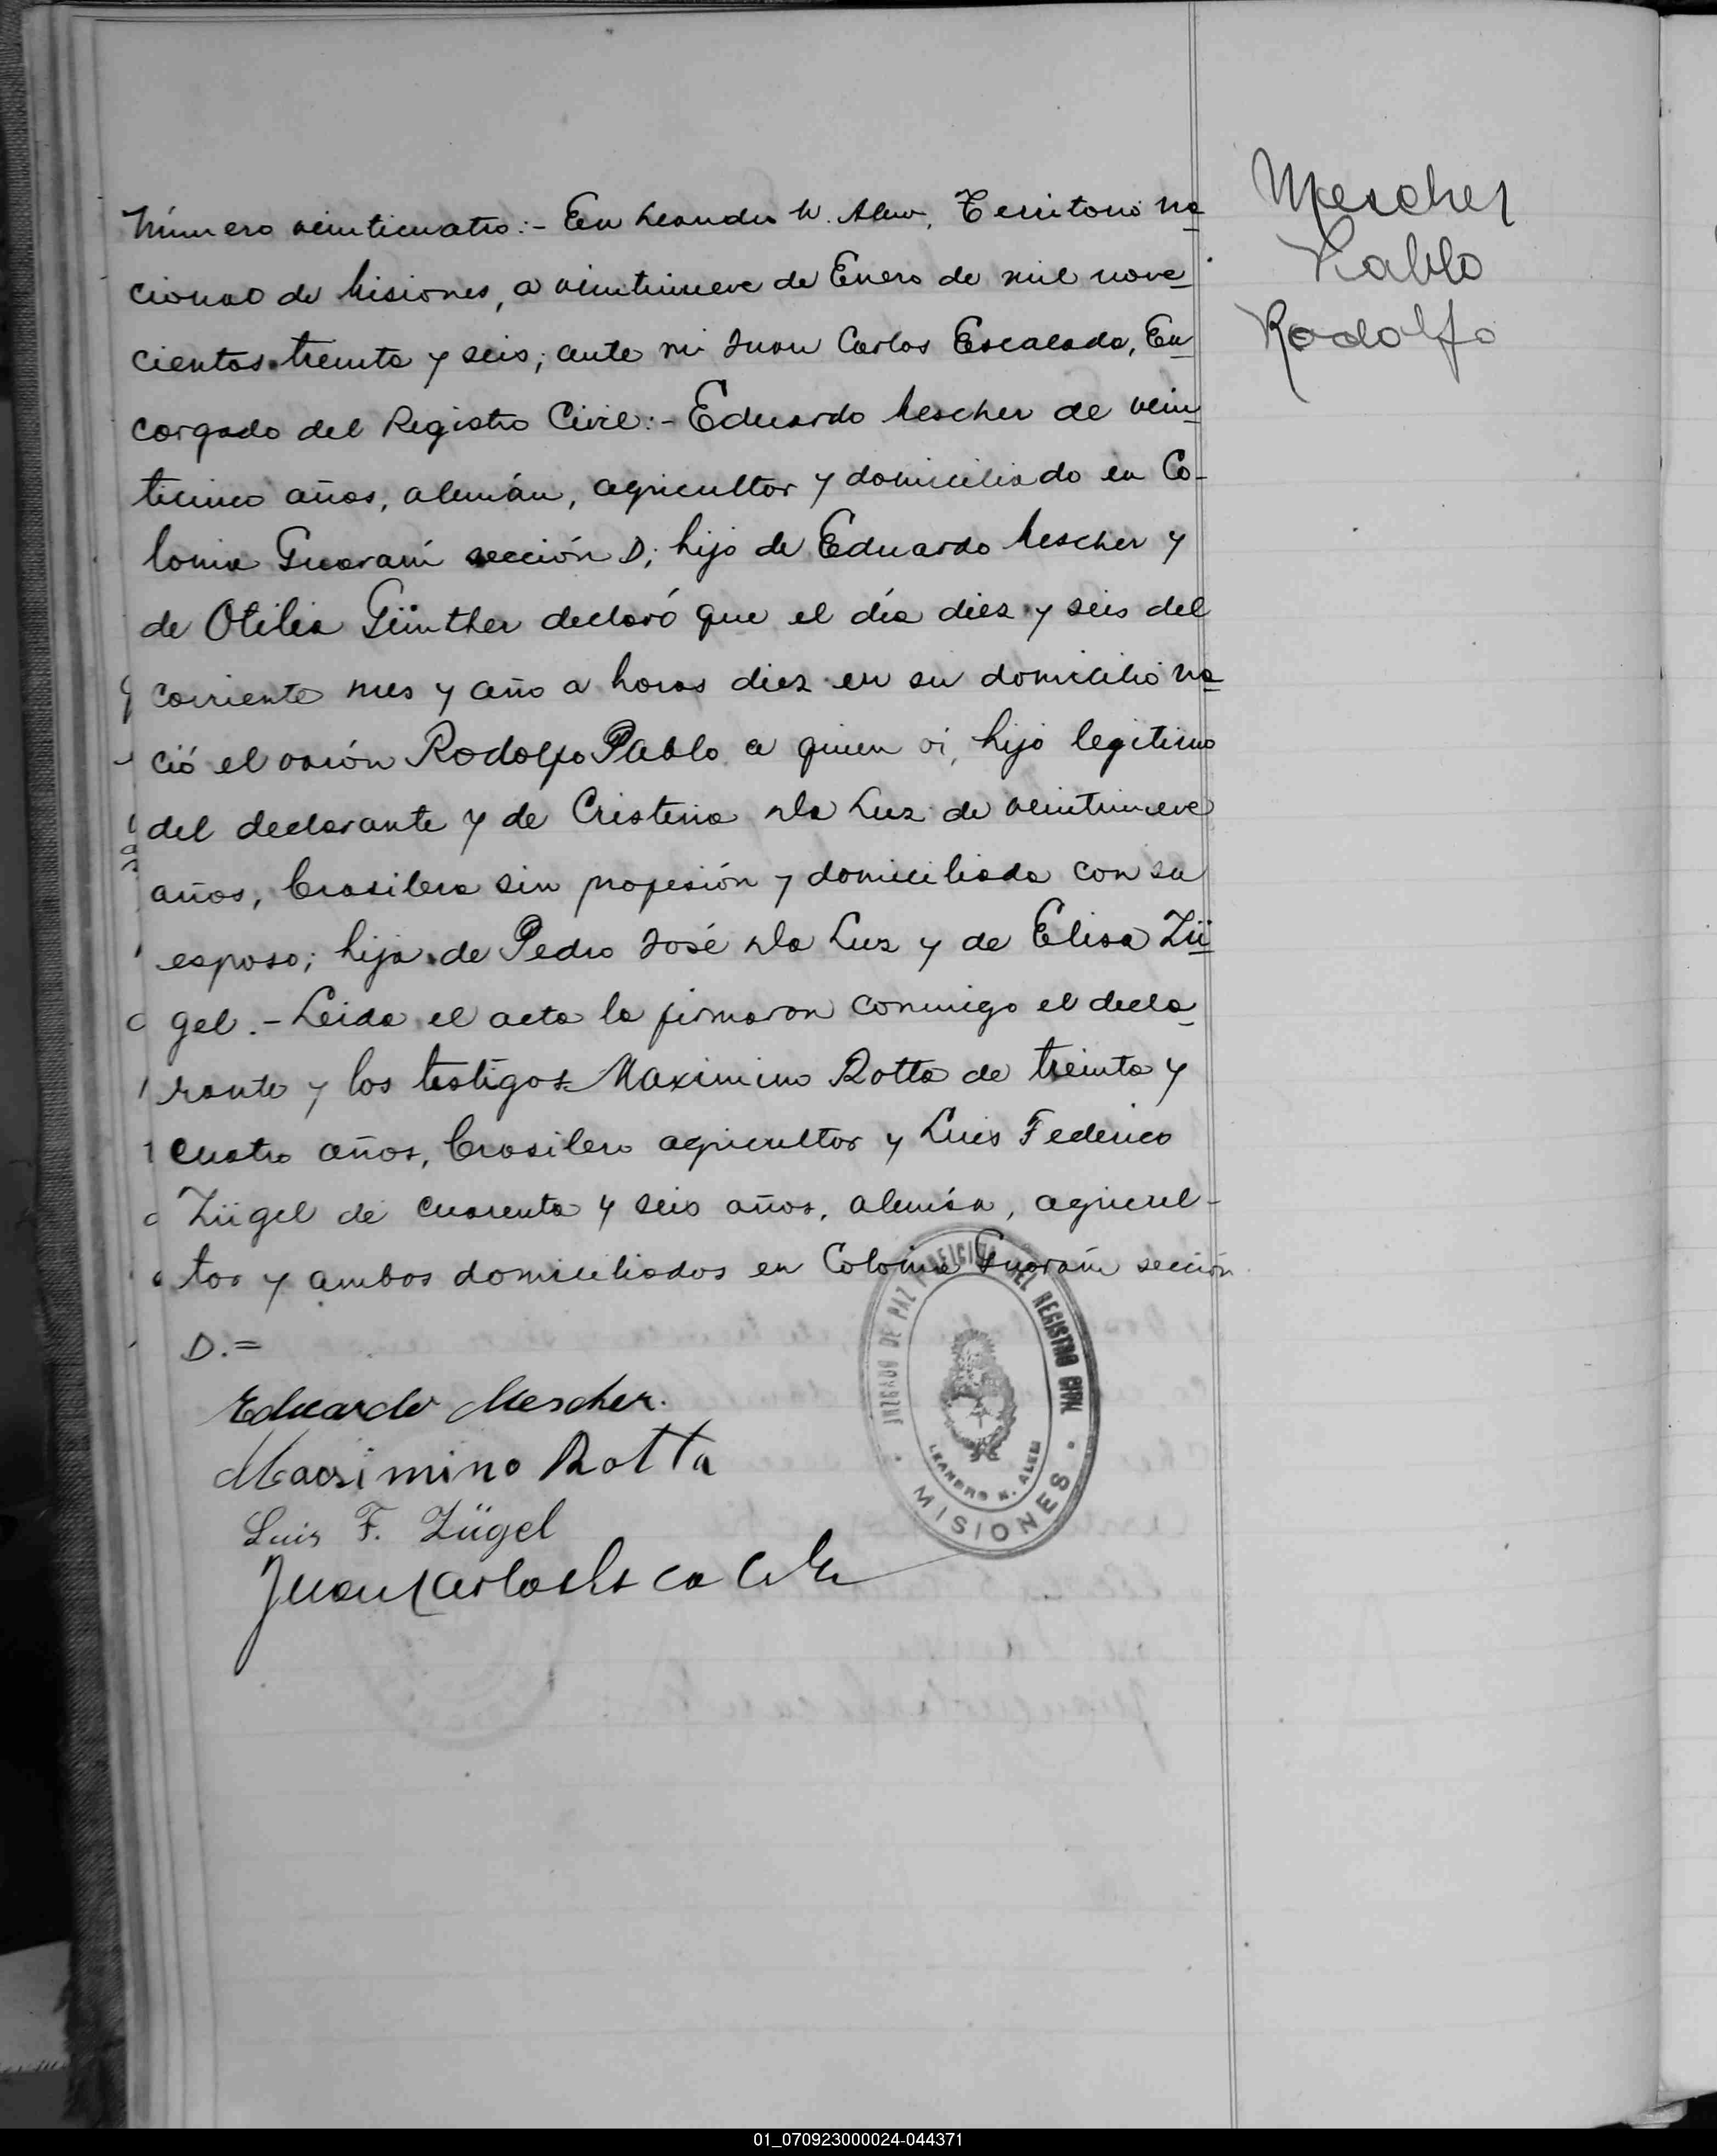 Número veinticuatro:- En Leandro N. Alem, Territorio na
cional de Misiones, a veintinueve de Enero de mil nove
cientos treinta y seis; ante mi Juan Carlos Escalada, En
cargado del Registro Civil:- Eduardo Mescher de vein
ticinco años, alemán, agricultor y domiciliado en Co-
lonia Guaraní sección D; hijo de Eduardo Mescher y
de Otilia Günther declaró que el día diez y seis del
corriente mes y año a horas diez en su domicilio na
ció el varón Rodolfo Pablo a quien vi, hijo legitimo
del declarante y de Cristina da Luz de veintinueve
años, brasilera sin profesión y domiciliada con su
esposo; hija de Pedro José da Luz y de Elisa Zü
gel.- Leida el acta la firmaron conmigo el decla
rante y los testigos Maximino Rotta de treinta y
cuatro años, brasilero agricultor y Luis Federico
Zügel de cuarenta y seis años, alemán, agricul-
tor y ambos domiciliados en Colonia Guaraní sección
D.=
Eduardo Mescher.
Macsimino Rotta
Luis F. Zügel
Juan Carlos Escalada
JUZGADO DE PAZ Y OFICINA DEL REGISTRO CIVIL
LEANDRO N. ALEM
MISIONES
Mescher
Pablo
Rodolfo
01_070923000024-044371